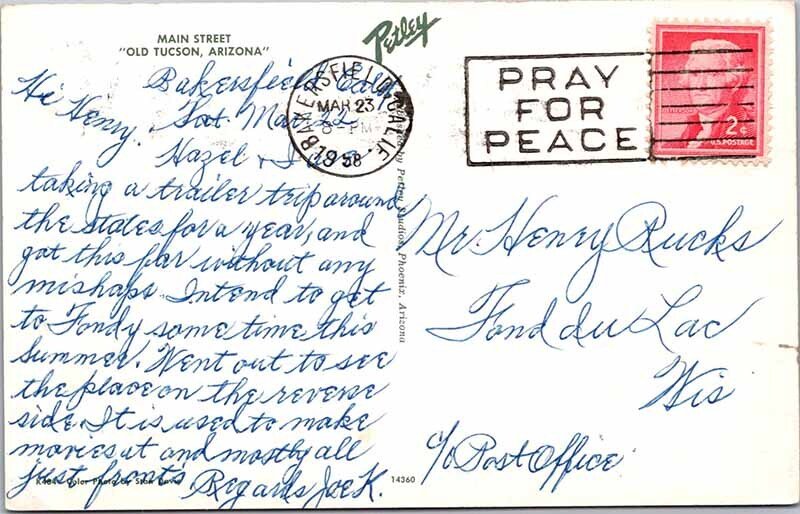 MAIN STREET
"OLD TUCSON, ARIZONA"
Petley
Bakersfield Calif
Hi Henry. Sat. Mar. 22
Hazel & I are
taking a trailer trip around
the states for a year, and
got this far without any
mishaps. Intend to get
to Fondy some time this
summer. Went out to see
the place on the reverse
side. It is used to make
movies at and mostly all
just fronts. Regards Joe K.
Color Photo by Stan Davis
14360
by Petley Studios, Phoenix, Arizona
BAKERSFIELD, CALIF.
MAR 23
8-PM
1958
PRAY
FOR
PEACE
2¢
U.S. POSTAGE
Mr. Henry Rucks
Fond du Lac
Wis
c/o Post Office